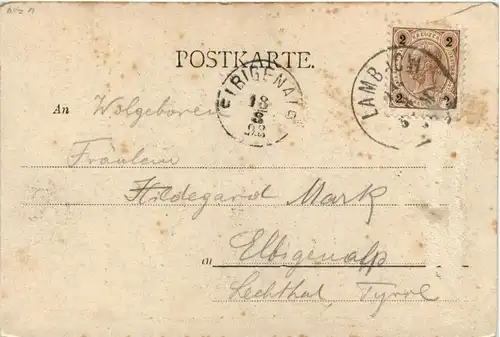 POSTKARTE.
2 KREUZER 2
2 2
ELBIGENALP
13
8
98
An Wolgeboren
Fräulein
Hildegard Mark
in Elbigenalp
Lechthal, Tyrol